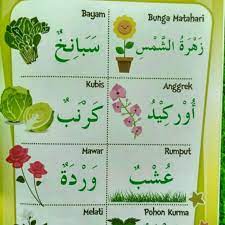 Bayam
سَبَانِخٌ
Bunga Matahari
زَهْرَةُ الشَّمْسِ
Kubis
كَرْنَبٌ
Anggrek
أُوْركِيْدُ
Mawar
وَرْدَةٌ
Rumput
عُشْبٌ
Melati
Pohon Kurma